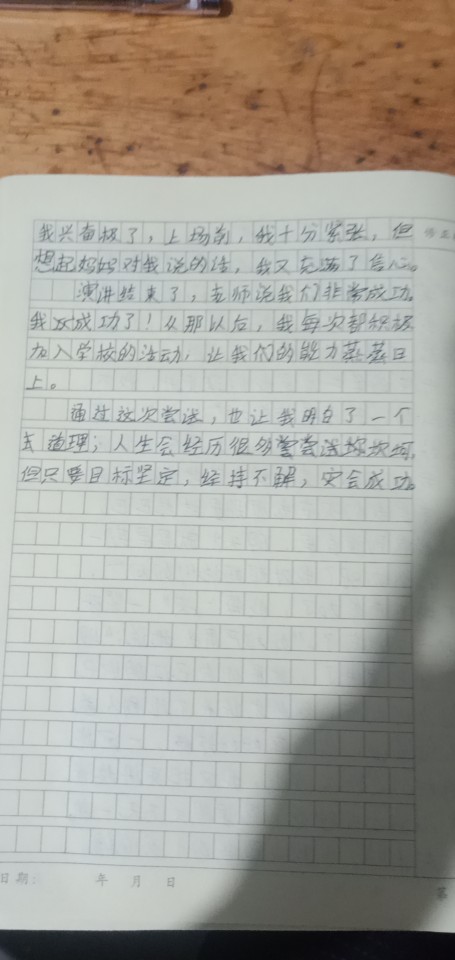 我兴奋极了，上场前，我十分紧张，但
想起妈妈对我说的话，我又充满了信心。
演讲结束了，老师说我们非常成功。
我成功了！从那以后，我每次都积极
加入学校的活动，让我们的能力蒸蒸日
上。
通过这次尝试，也让我明白了一个
道理；人生会经历很多尝尝试坎坎坷，
但只要目标坚定，坚持不懈，定会成功。
日期： 年 月 日
第